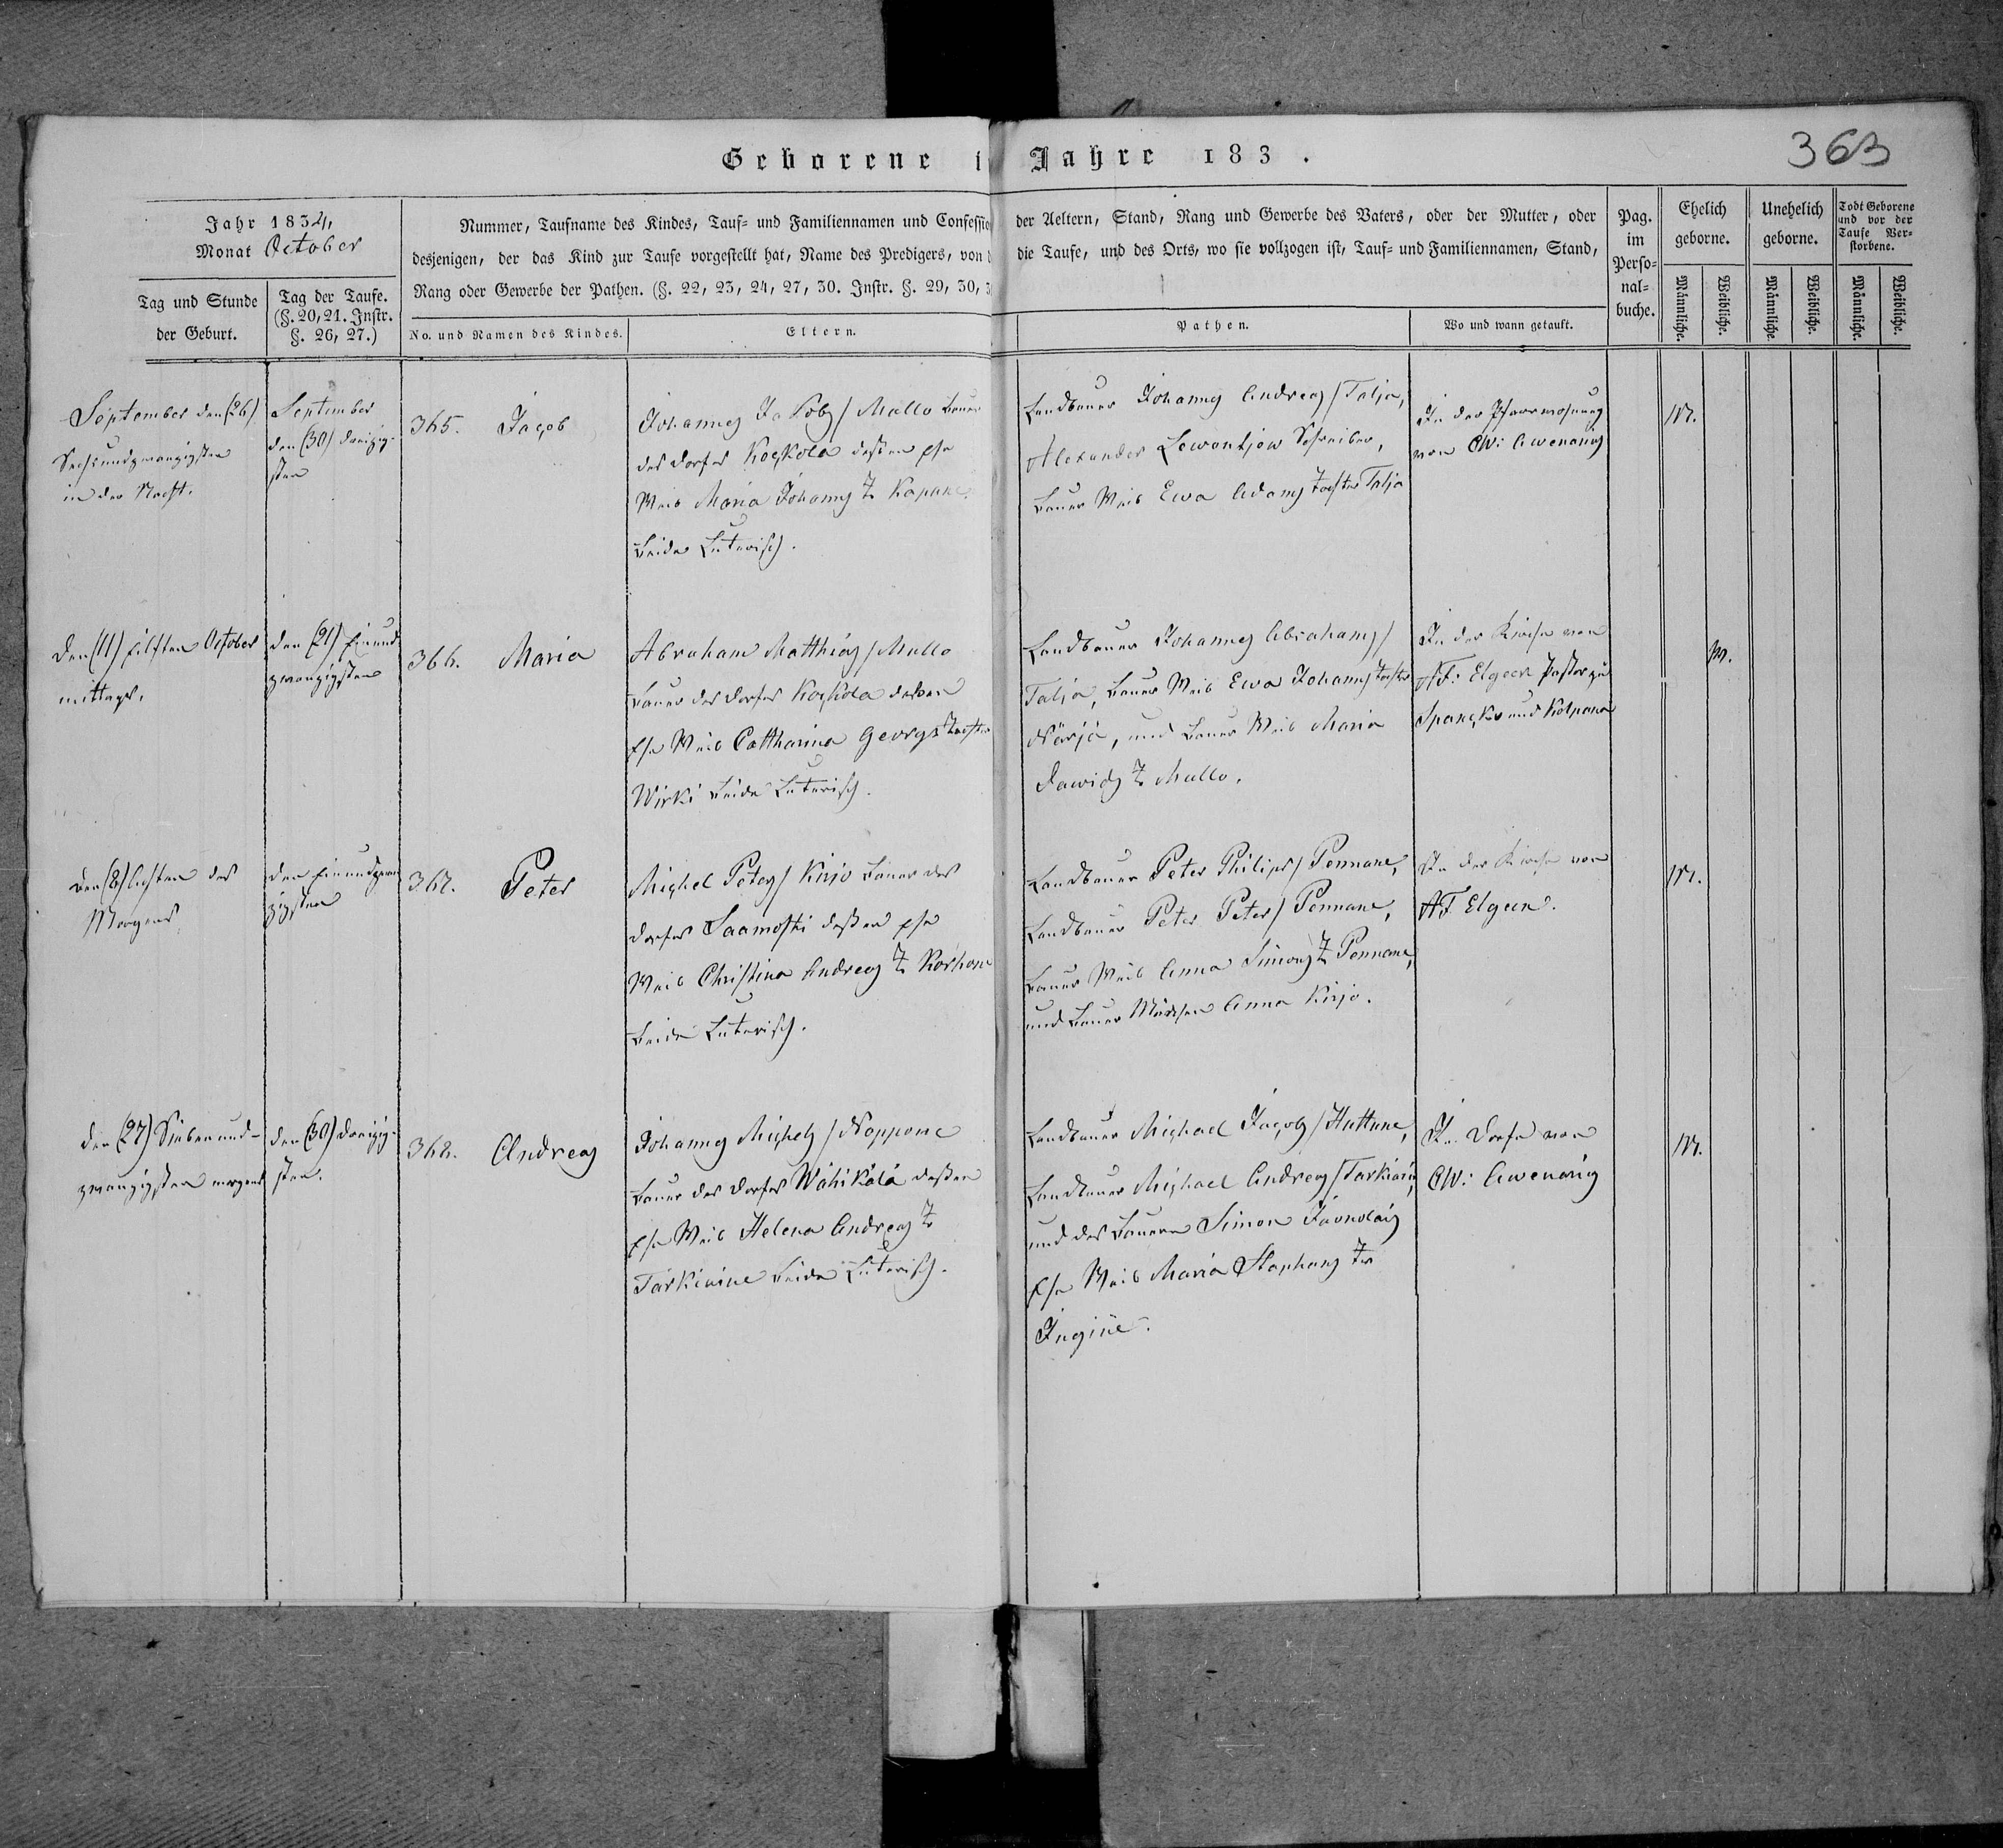 363
Geborene i Jahre 183 .
Jahr 1834,
Monat October
Tag und Stunde
der Geburt.
Tag der Taufe.
(§. 20, 21. Instr.
§. 26, 27.)
Nummer, Taufname des Kindes, Tauf- und Familiennamen und Confessio
desjenigen, der das Kind zur Taufe vorgestellt hat, Name des Predigers, von
Rang oder Gewerbe der Pathen. (§. 22, 23, 24, 27, 30. Instr. §. 29, 30, 3
No. und Namen des Kindes.
Eltern.
der Aeltern, Stand, Rang und Gewerbe des Vaters, oder der Mutter, oder
die Taufe, und des Orts, wo sie vollzogen ist, Tauf- und Familiennamen, Stand,
Pathen.
Wo und wann getauft.
Pag.
im
Perso-
nal-
buche.
Ehelich
geborne.
Unehelich
geborne.
Todt Geborene
und vor der
Taufe Ver-
storbene.
Männliche.
Weibliche.
Männliche.
Weibliche.
Männliche.
Weibliche.
September den (26)
Sechsundzwanzigsten
in der Nacht.
September
den (30) dreißig-
sten
365. Jacob
Johannes Jakobs / Mullo Bauer
des Dorfes Koskola deßen Ehe
Weib Maria Johanns T. Kapane
Beide Luterisch.
Landbauer Johannes Andreas / Talja,
Alexander Lewontjew Schreiber,
Bauer Weib Ewa Adams Tochter Talja
In der Pfarrwohnung
von CW: Awenarius
M.
Den (11) Eilften October
mittags.
den (21) Einund
zwanzigsten
366. Maria
Abraham Matthias / Mullo
Bauer des Dorfes Koskola deßen
Ehe Weib Cattharina Georgs Tochter
Wirki Beide Luterisch.
Landbauer Johannes Abrahams /
Talja, Bauer Weib Ewa Johanns Tochter
Närjä, und Bauer Weib Maria
Dawids T. Mullo.
In der Kirche von
AF: Elgeen Pastor zu
Spanska und Kolpana
M.
Den (8) Achten des
Morgens.
den Einundzwan
zigsten
367. Peter
Michel Peters / Kirjo Bauer des
Dorfes Saamosti deßen Ehe
Weib Christina Andreas T. Korhone
Beide Luterisch.
Landbauer Peter Philips / Pennane,
Landbauer Peter Peters / Pennane,
Bauer Weib Anna Simons T. Pennane,
und Bauer Mädchen Anna Kirjo.
In der Kirche von
AF Elgeen.
M.
den (27) Siebenund-
zwanzigsten morgens
den (30) dreißig-
sten.
368. Andreas
Johannes Michels / Noppone
Bauer des Dorfes Wähikälä deßen
Ehe Weib Helena Andreas T.
Tarkiaine Beide Luterisch.
Landbauer Michael Jacobs / Huttune,
Landbauer Michael Andreas / Tarkiain,
und des Bauern Simon
Ehe Weib Maria Stephans T.
Ingine.
In Dorfe von
CW: Awenarius
M.